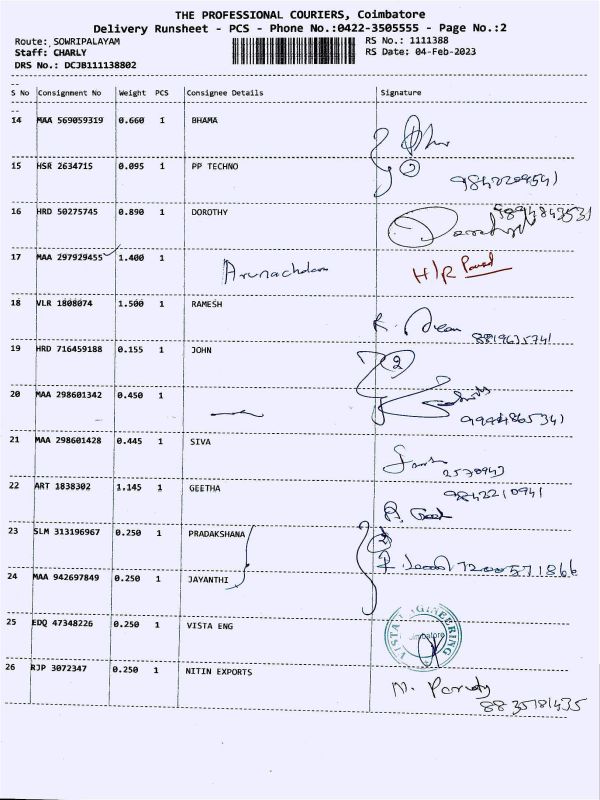 THE PROFESSIONAL COURIERS, Coimbatore
Delivery Runsheet - PCS - Phone No.:0422-3505555 - Page No.:2
Route: SOWRIPALAYAM RS No.: 1111388
Staff: CHARLY RS Date: 04-Feb-2023
DRS No.: DCJB111138802
S No Consignment No Weight PCS Consignee Details Signature
14 MAA 569059319 0.660 1 BHAMA
15 HSR 2634715 0.095 1 PP TECHNO 2
16 HRD 50275745 0.890 1 DOROTHY
17 MAA 297929455 1.400 1 Arunachalam H/R
18 VLR 1808074 1.500 1 RAMESH
8819635741
19 HRD 716459188 0.155 1 JOHN 2
20 MAA 298601342 0.450 1
9944865341
21 MAA 298601428 0.445 1 SIVA
2570943
22 ART 1838302 1.145 1 GEETHA 9842210941
23 SLM 313196967 0.250 1 PRADAKSHANA 2
7200571866
24 MAA 942697849 0.250 1 JAYANTHI
25 EDQ 47348226 0.250 1 VISTA ENG VISTA ENGINEERING
Coimbatore
26 RJP 3072347 0.250 1 NITIN EXPORTS
8835181435